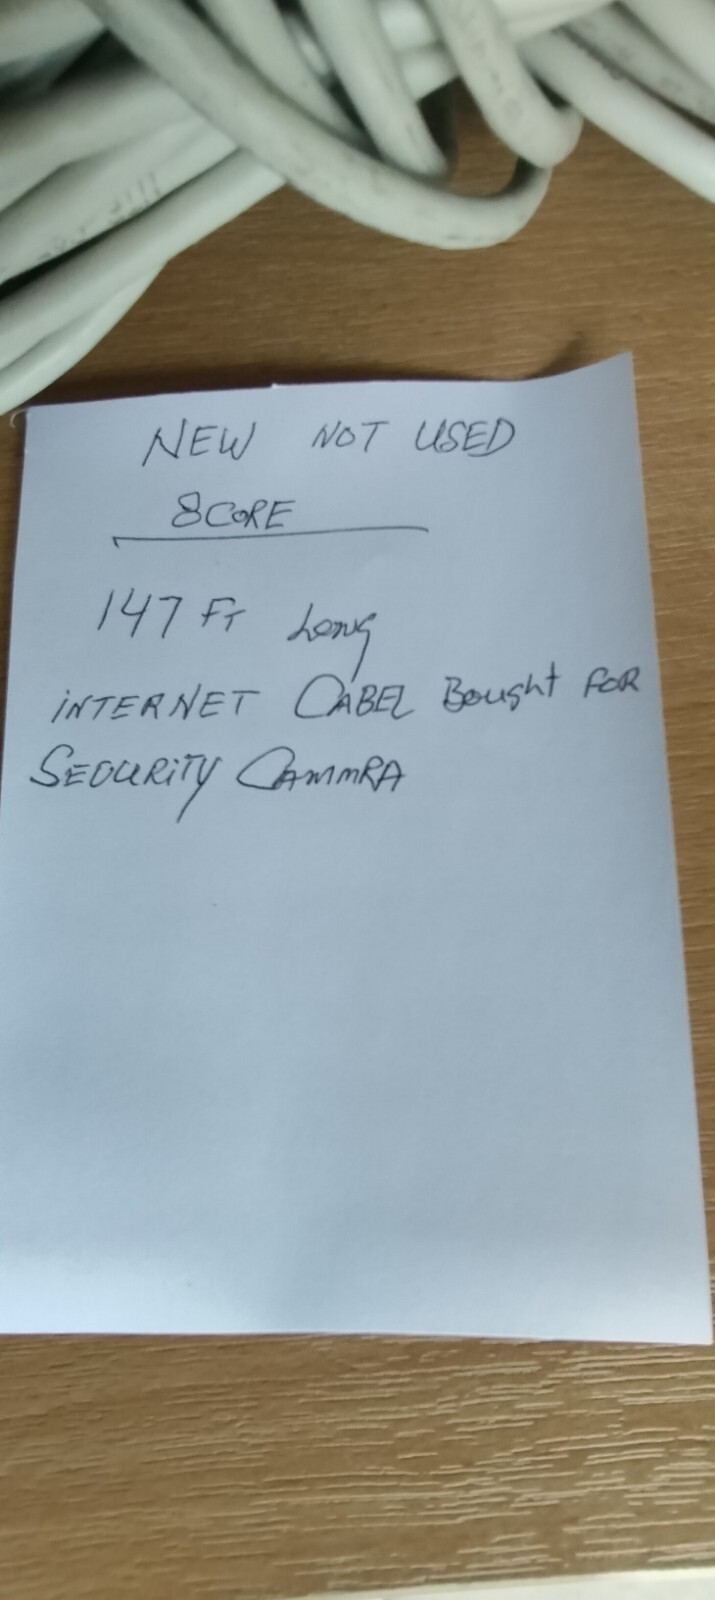 NEW NOT USED
8CORE
147 FT Long
iNTERNET CABEL Bought FOR
SECURITY CAMMRA